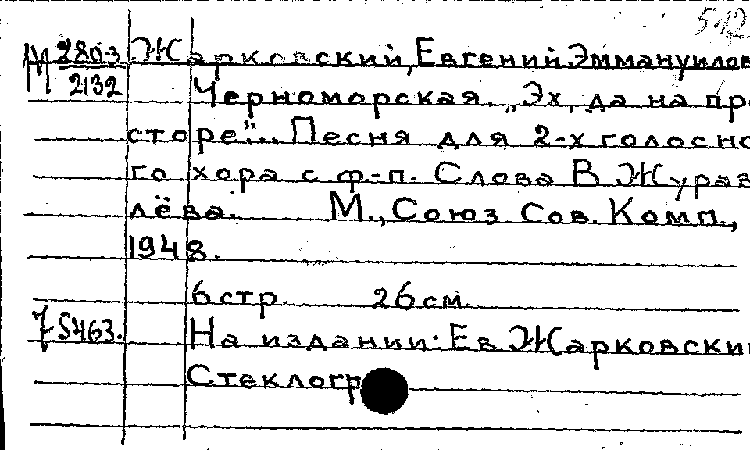 512
М 2803/2132 Жарковский, Евгений Эммануилов
Черноморская. „Эх, да на про
сторе"... Песня для 2-х голосно
го хора с ф-п. Слова В Журав
лёва. М., Союз Сов. Комп.,
1948.
6 стр. 26 см.
75463. На издании: Ев Жарковский
Стеклогр